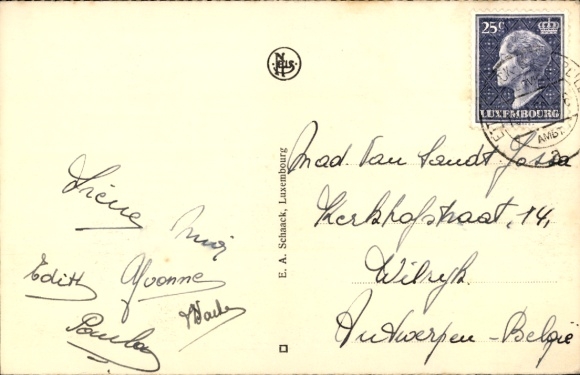 25c
LUXEMBOURG
NELS
E. A. Schaack, Luxembourg
Irène
Edith Yvonne
Paula
Mad. Van Sandt-Jossa
Kerkhofstraat, 14,
Wilryk.
Antwerpen - België